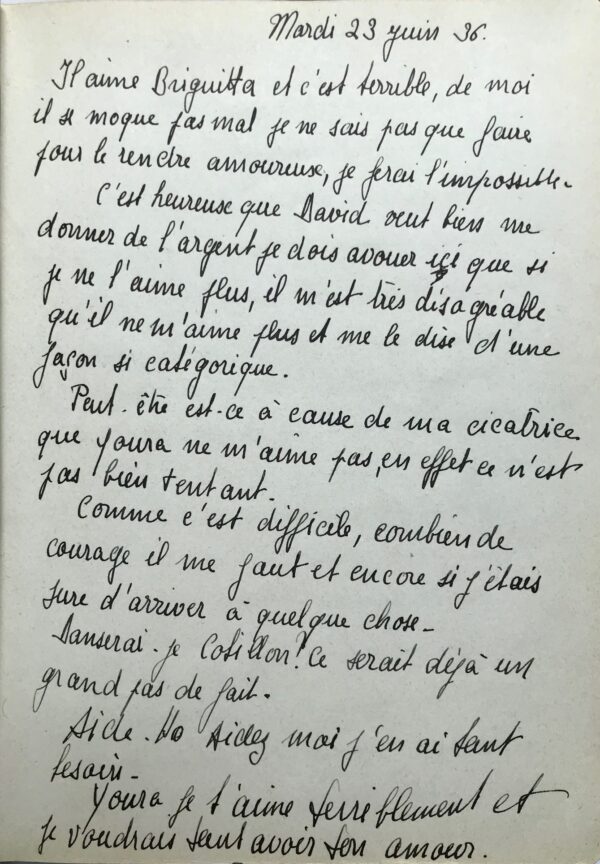 Mardi 23 juin 36.
Il aime Briguitta et c'est terrible, de moi
il se moque pas mal je ne sais pas que faire
pour le rendre amoureuse, je ferai l'impossible.
C'est heureuse que David veut bien me
donner de l'argent je dois avouer ici que si
je ne l'aime plus, il m'est très disagréable
qu'il ne m'aime plus et me le dise d'une
façon si catégorique.
Peut-être est-ce à cause de ma cicatrice
que Youra ne m'aime pas, en effet ce n'est
pas bien tentant.
Comme c'est difficile, combien de
courage il me faut et encore si j'étais
sure d'arriver à quelque chose-
Danserai-je Cotillon? Ce serait déjà un
grand pas de fait.
Aide- Aidez moi j'en ai tant
besoin-
Youra je t'aime terriblement et
je voudrais tant avoir ton amour.